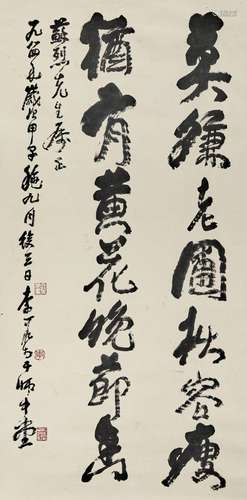 莫嫌老圃秋容瘦
猶有黃花晚節香
蘇烈先生屬正
一九八四年歲次甲子穐九月後三日李可染于師牛堂